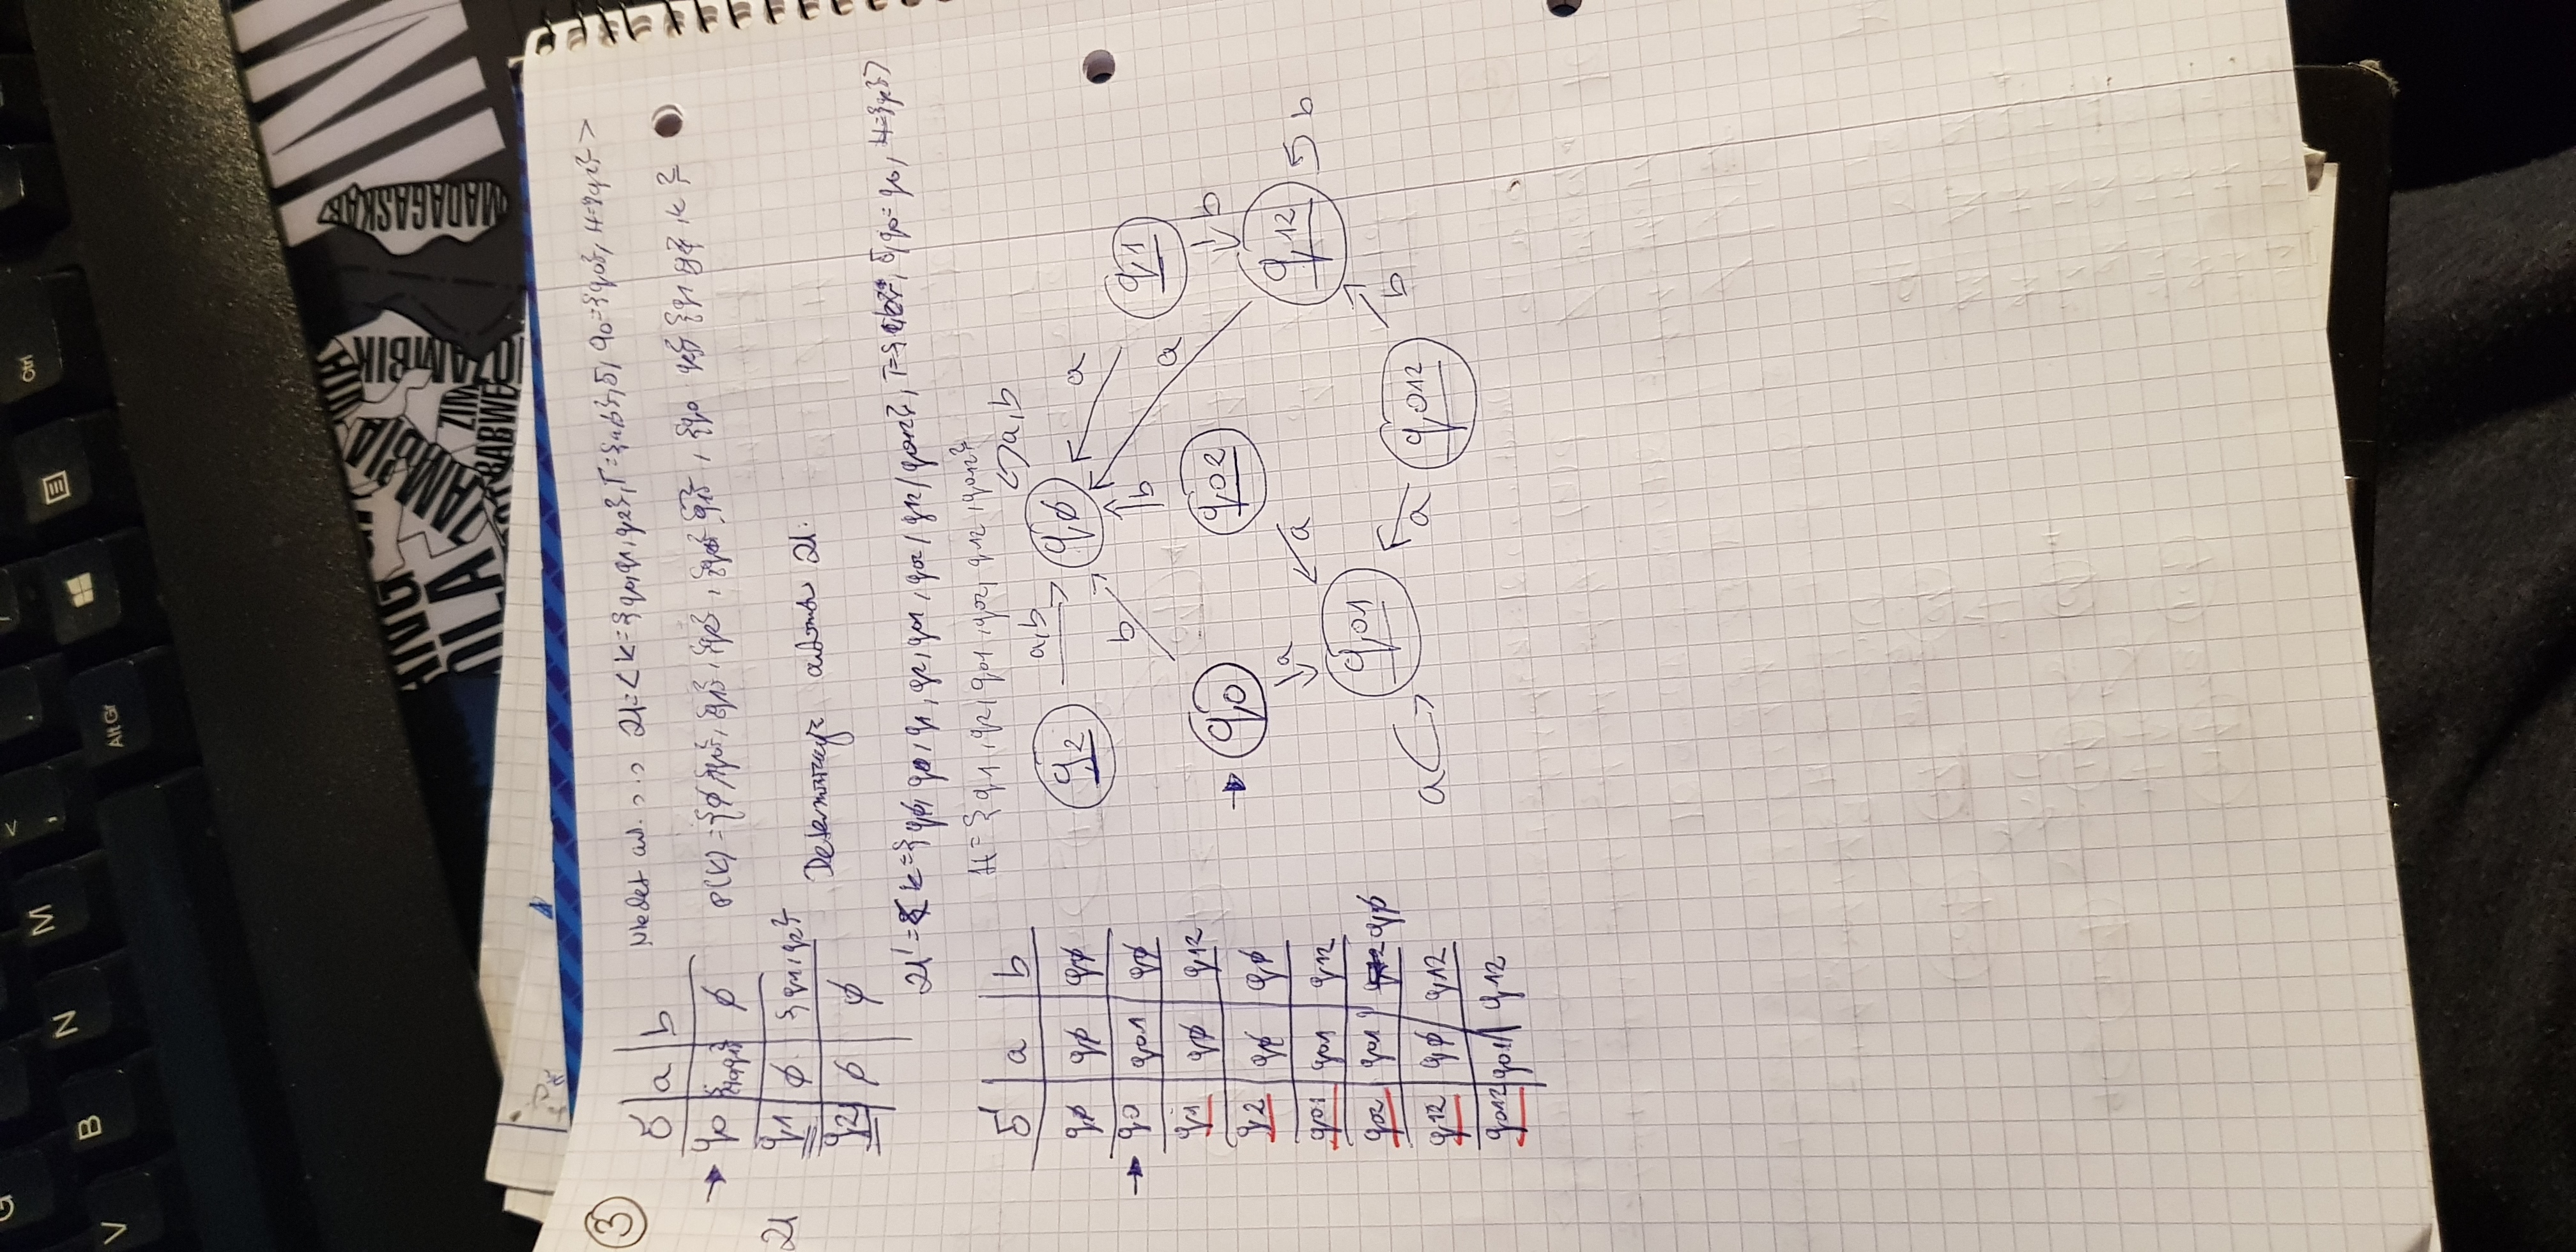 G < /
V B N M , Alt Gr Ctrl
ANG
OLA ZAMBIA
ZIM
BABWE
MADAGASKAR
IN
③
δ | a | b
→ q0 | {q0,q1} | ∅
q1 | ∅ | {q1,q2}
q2 | ∅ | ∅
𝔄
Niedet aut. ... 𝔄=<K={q0,q1,q2}, Γ={a,b}, δ, q0={q0}, H={q2}>
P(K)={∅,{q0},{q1},{q2},{q0 q1},{q0 q2},{q1 q2},K}
𝔄.
𝔄'=<K={q∅, q0, q1, q2, q01, q02, q12, q012}, Γ={a,b}, δ, q0=q0, H={q2}>
H={q1, q2, q01, q02, q12, q012}
δ' | a | b
q∅ | q∅ | q∅
→ q0 | q01 | q∅
q1 | q∅ | q12
q2 | q∅ | q∅
q01 | q01 | q12
q02 | q01 | q∅
q12 | q∅ | q12
q012 | q01 | q12
a,b
q2 a,b q∅ a
b b a q1
→ q0 q02 b
a a q12 b
q01 b
a a q012